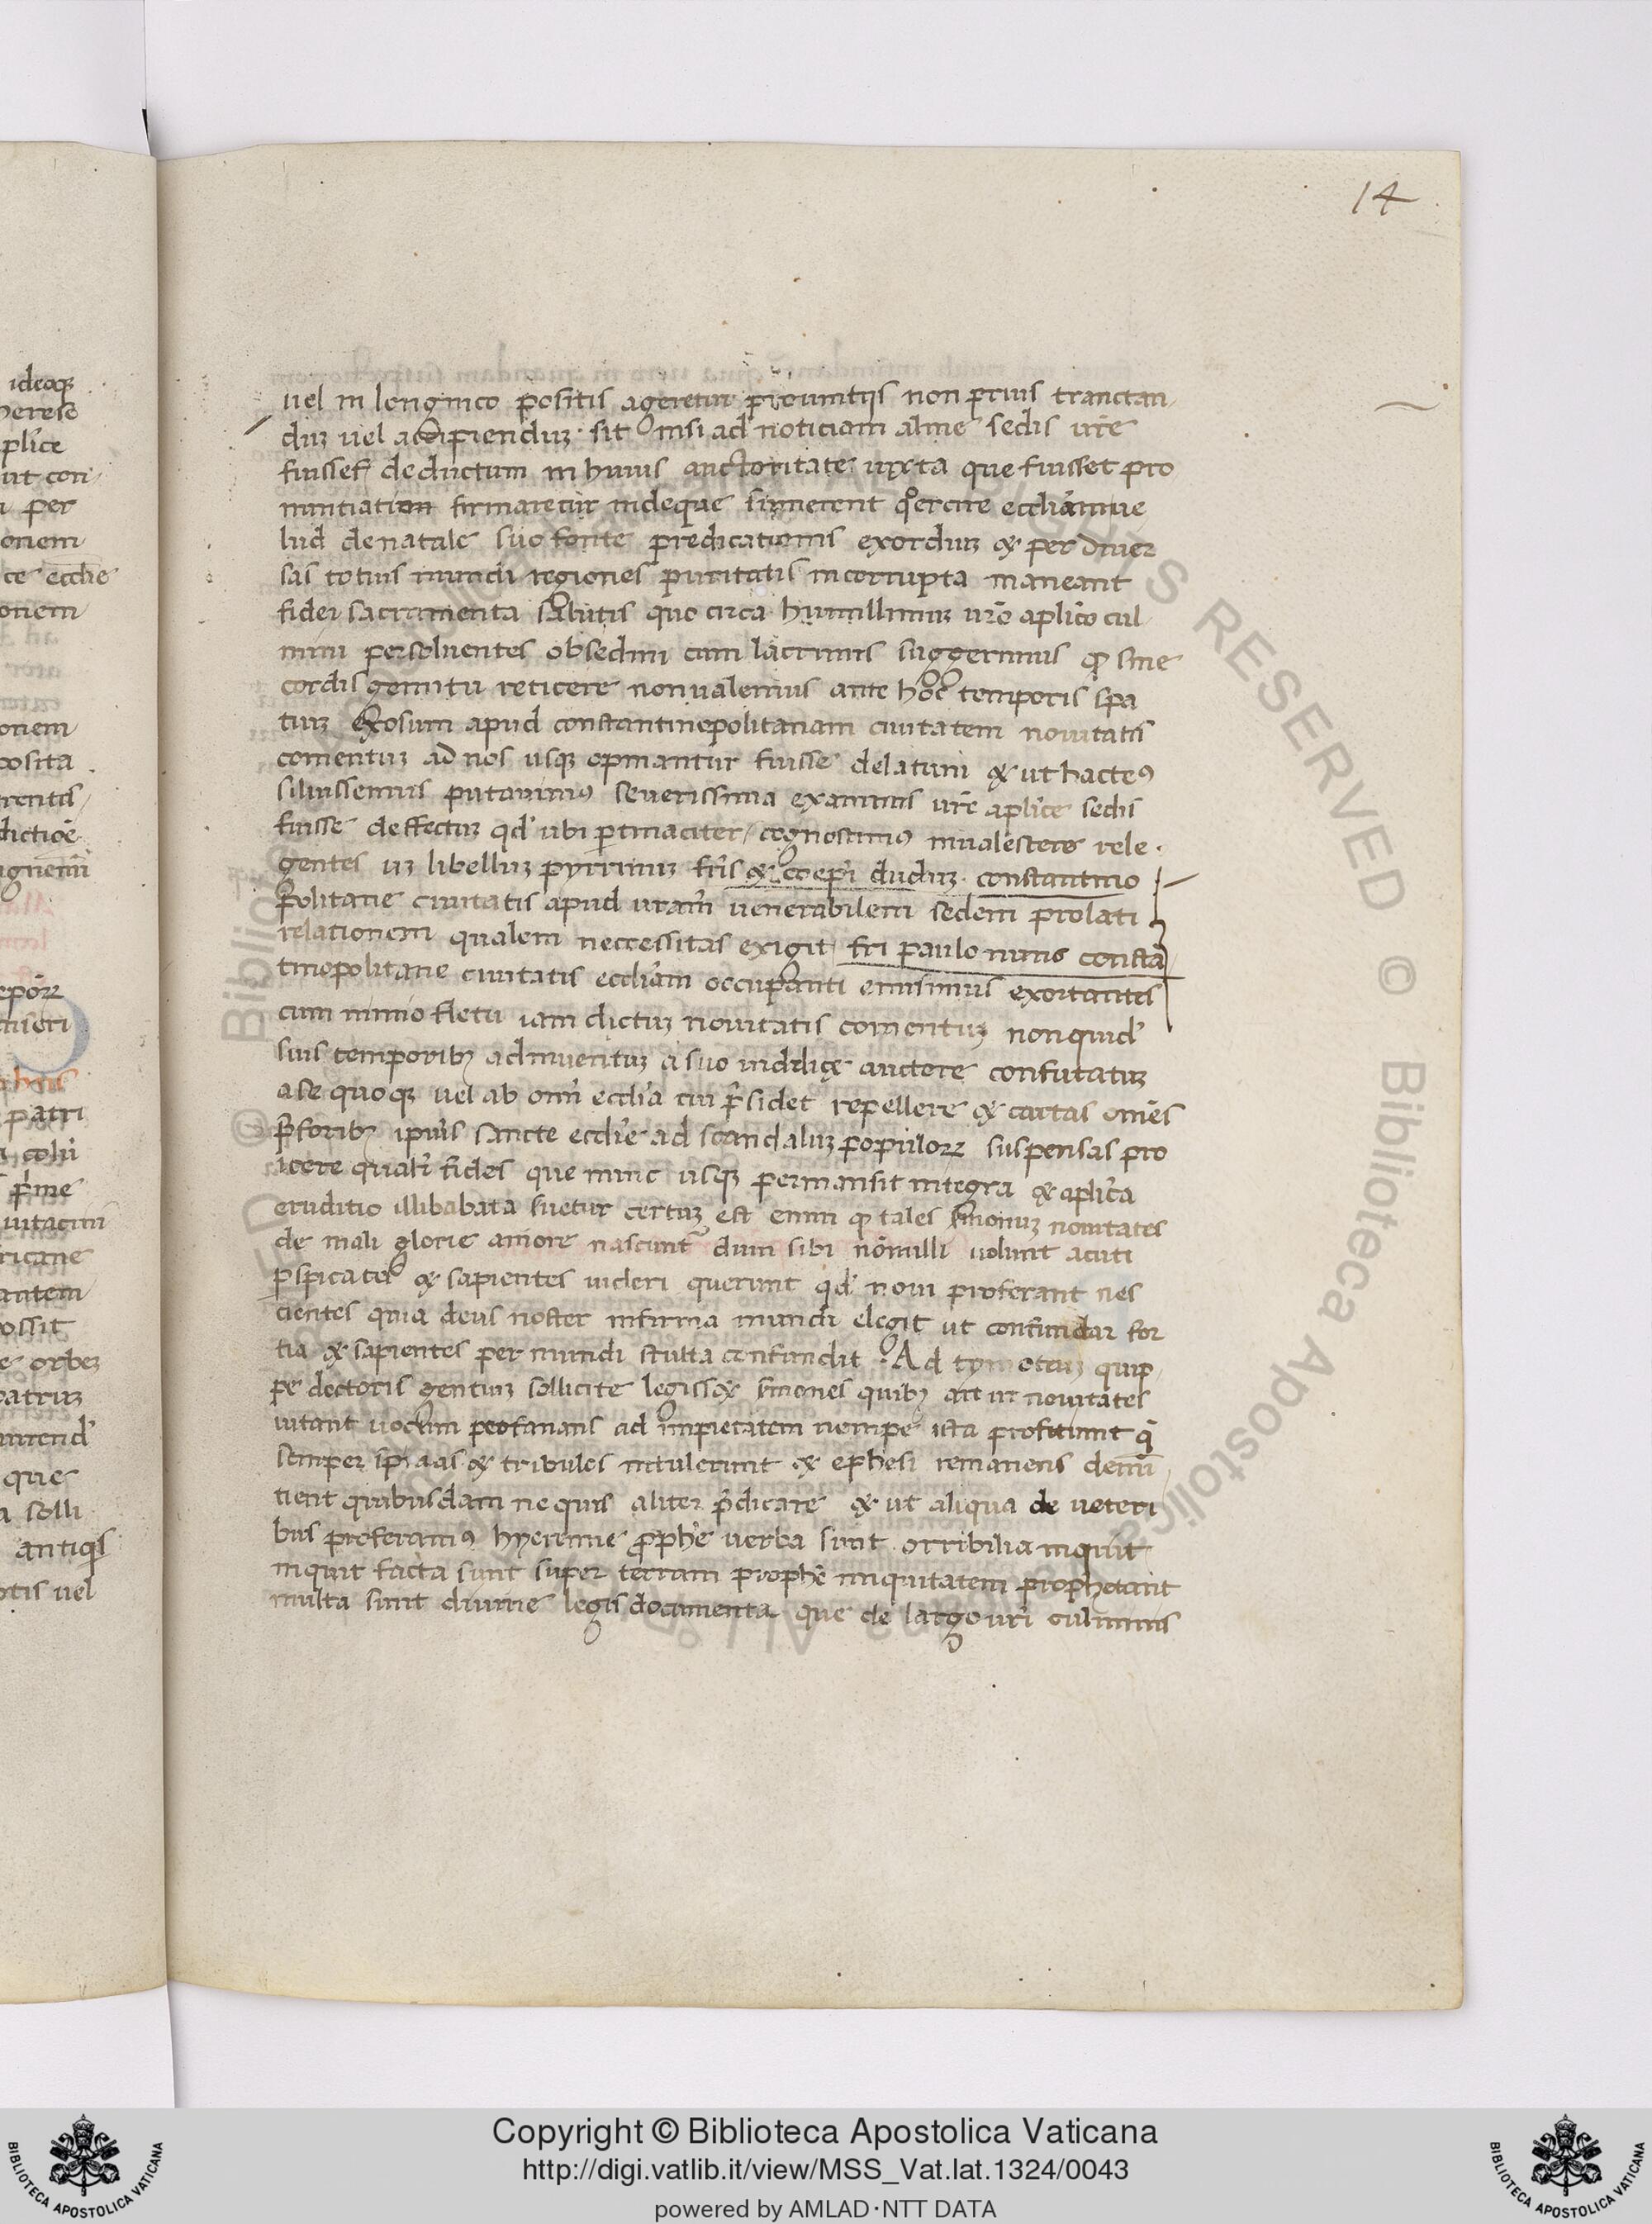 14
uel in longinco positis ageretur prouintiis non prius tranctan
duꝫ uel accipienduꝫ sit nisi ad noticiam alme sedis ur̃e
fuisset deductum in huius auctoritate iuxta que fuisset pro
nuntiation firmaretur indeque sumerent cercire eccliãmue
lud de natale suo fonte predicationis exorduꝫ & per diuer
sas totius mundi regiones puritatis incorrupta maneant
fidei sacramenta salutis quo circa humillimuꝫ ur̃o aplico cul
mini persoluentes obsedim cum lacrimis suggerimus ꝙ sine
cordis gemitu reticere non ualemus ante hoc temporis spa
tiuꝫ exosum apud constantinopolitanam ciuitatem nouitatis
comentuꝫ ad nos usqꝫ opinantur fuisse delatum & ut hacteꝰ
siluissemus putauimꝰ seuerissima examinis ur̃e aplice sedis
fuisse deffectuꝫ qd̓ ubi pertinaciter cognoscimꝰ inualescere rele
gentes uꝫ libellum pyrrinuꝫ fr̃is & coepi duduꝫ constantino
politane ciuitatis apud uram̃ uenerabilem sedem prolati
relationem qualem neccessitas exigit fri paulo nunc constã
tinopolitane ciuitatis eccliãm occupanti emisimus exortantes
cum nimio fletu iam dictuꝫ nouitatis comentuꝫ non quid̓
suis temporibꝫ adinuentuꝫ a suo iuddice auctore confutatuꝫ
a se quoqꝫ uel ab omi ecclia cui p̃sidet repellere & cartas omẽs
p̃foribꝫ ipius sancte ecclie ad scandaluꝫ populoꝝ suspensas pro
icere quati fides que nunc usqꝫ permansit integra & aplica
eruditio illibabata suetur certuꝫ est enim ꝙ tales s̃monuꝫ nouitates
de mali glorie amore nascunt̃ dum sibi nõnulli uolunt acuti
pspicates & sapientes uideri querunt qd̓ noui proferant nes
cientes quia deus noster infirma mundi elegit ut confundar for
tia & sapientes per mundi stulta confundit Ad tymoteuꝫ quip
pe doctoris gentuꝫ sollicite legiss & s̃mones quibꝫ ait ut nouitates
uitant uocum profanans ad impietatem nempe ista profitiunt q̃
semper spinas & tribulos intulerunt & ephesi remanens denũ
tient quibusdam ne quis aliter p̃dicare & ut aliqua de ueteri
bus proferamꝰ hyeremie ꝓphe uerba sunt orribilia inquit
inquit facta sunt super terram prophe iniquitatem prophetant
multa sunt diuine legis documenta que de largo uri culminis
Copyright © Biblioteca Apostolica Vaticana
http://digi.vatlib.it/view/MSS_Vat.lat.1324/0043
powered by AMLAD·NTT DATA